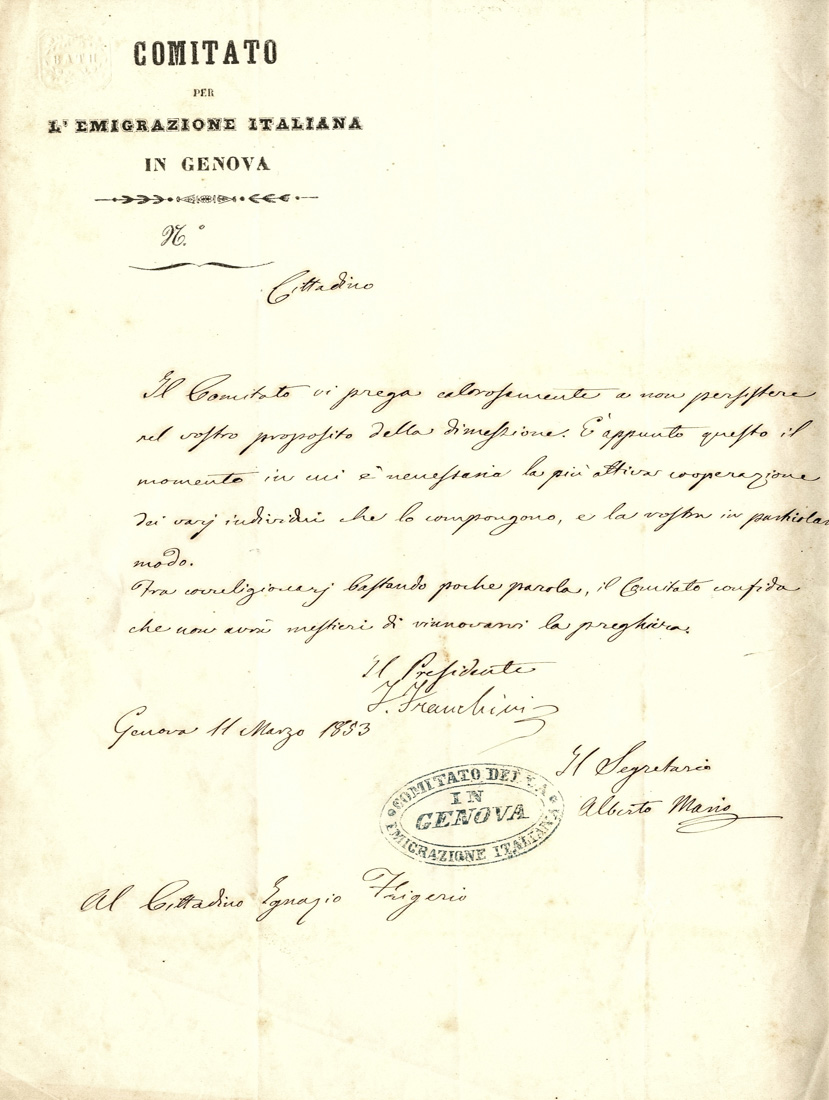 BATH
COMITATO
PER
L'EMIGRAZIONE ITALIANA
IN GENOVA
N.º
Cittadino
Il Comitato vi prega calorosamente a non persistere
nel vostro proposito della dimessione. È appunto questo il
momento in cui è necessaria la più attiva cooperazione
dei varj individui che lo compongono, e la vostra in particolar
modo.
Fra correligionarj bastando poche parole, il Comitato confida
che non avrà mestieri di rinnovarvi la preghiera.
Il Presidente
F. Franchini
Genova 11 Marzo 1853
Il Segretario
Alberto Mario
COMITATO DELLA
IN
GENOVA
EMIGRAZIONE ITALIANA
Al Cittadino Ignazio Frigerio